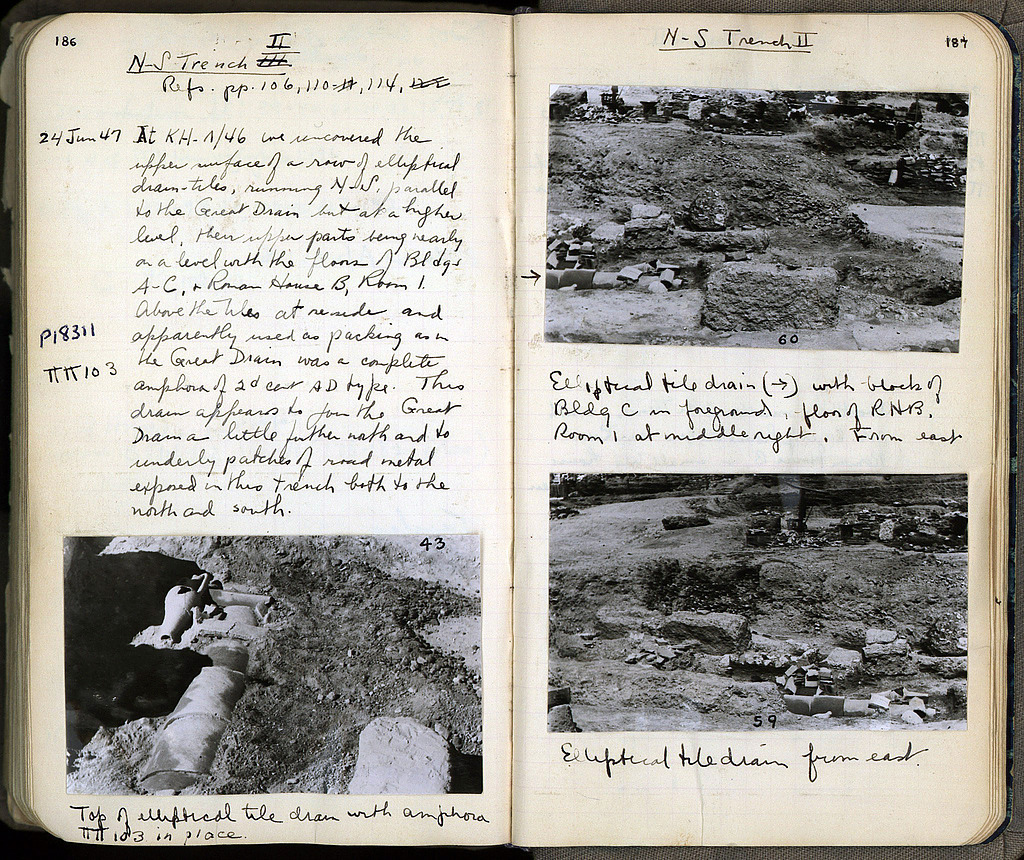 186
II
N-S Trench III
Refs. pp. 106, 110-11, 114,
24 Jun 47 At KH-1/46 we uncovered the
upper surface of a row of elliptical
drain-tiles, running N-S, parallel
to the Great Drain but at a higher
level, their upper parts being nearly
on a level with the floors of Bldgs
A-C, + Roman House B, Room 1.
Above the tiles at one side and
P18311 apparently used as packing as in
the Great Drain was a complete
ΠΠ103 amphora of 2d cent AD type. This
drain appears to join the Great
Drain a little further north and to
underly patches of road metal
exposed in this trench both to the
north and south.
43
Top of elliptical tile drain with amphora
ΠΠ103 in place.
N-S Trench II
187
→
60
Elliptical tile drain (→) with block of
Bldg C in foreground, floor of RHB,
Room 1 at middle right. From east
59
Elliptical tile drain from east